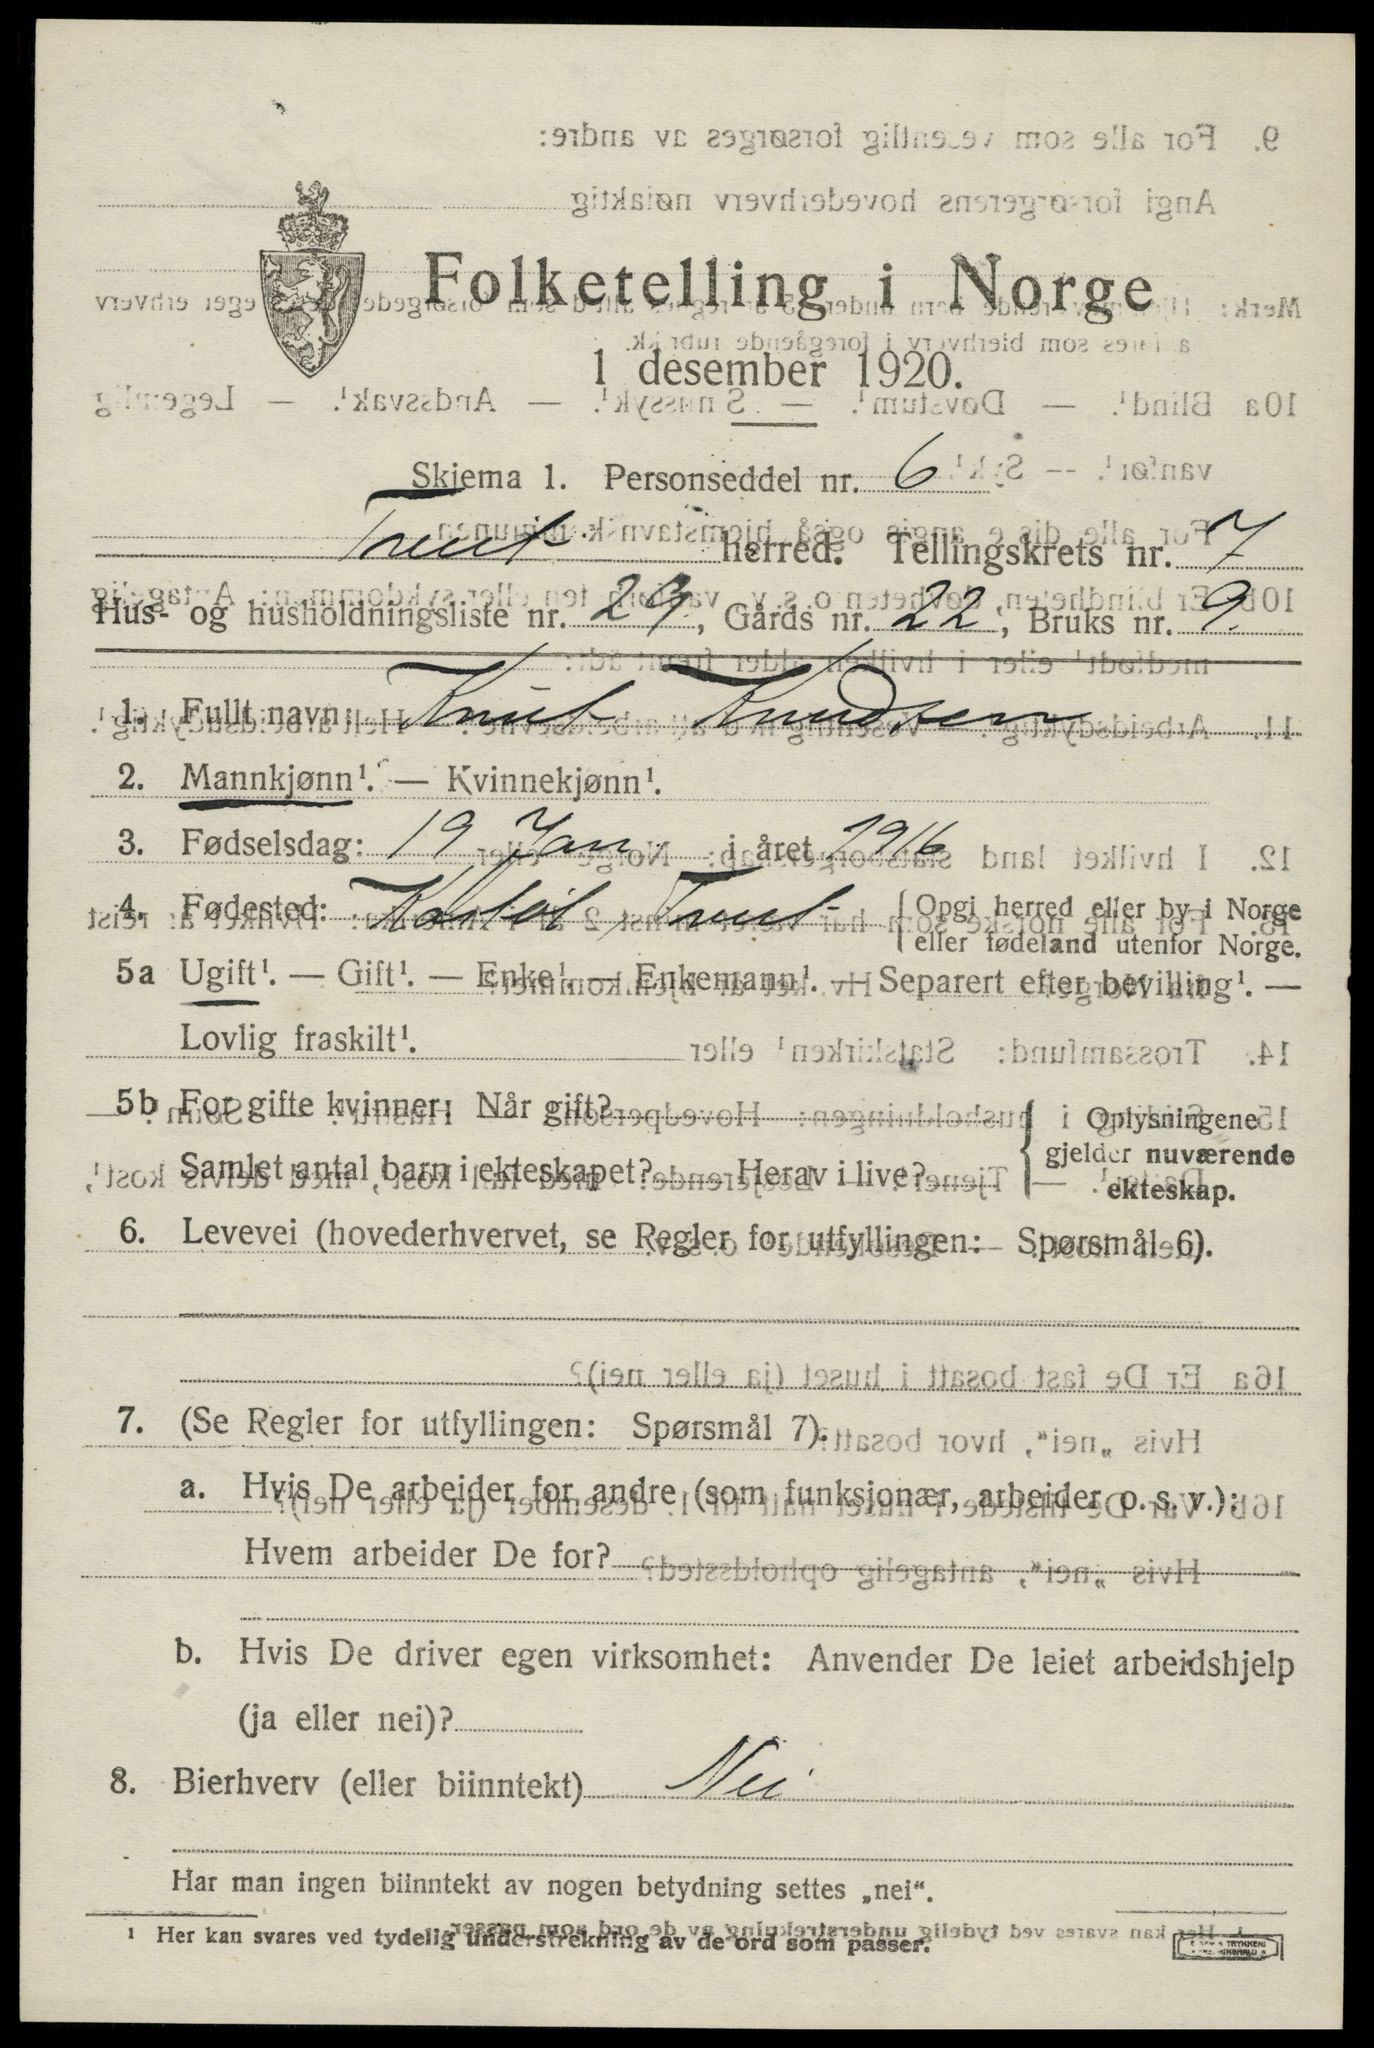 Folketelling i Norge
1 desember 1920.
Skjema 1. Personseddel nr. 6
herred. Tellingskrets nr. 7
Hus- og husholdningsliste nr. 29, Gårds nr. 22, Bruks nr. 9.
1. Fullt navn: Knut Knudsen
2. Mannkjønn¹. — Kvinnekjønn¹.
3. Fødselsdag: 19 Jan. i året 1916
4. Fødested: {Opgi herred eller by i Norge
eller fødeland utenfor Norge.
5a Ugift¹. — Gift¹. — Enke¹. — Enkemann¹. — Separert efter bevilling¹. —
Lovlig fraskilt¹.
5b For gifte kvinner: Når gift?
Samlet antal barn i ekteskapet? Herav i live?
{Oplysningene
gjelder nuværende
ekteskap.
6. Levevei (hovederhvervet, se Regler for utfyllingen: Spørsmål 6).
7. (Se Regler for utfyllingen: Spørsmål 7).
a. Hvis De arbeider for andre (som funksjonær, arbeider o. s. v.):
Hvem arbeider De for?
b. Hvis De driver egen virksomhet: Anvender De leiet arbeidshjelp
(ja eller nei)?
8. Bierhverv (eller biinntekt) Nei
Har man ingen biinntekt av nogen betydning settes „nei“.
¹ Her kan svares ved tydelig understrekning av de ord som passer.